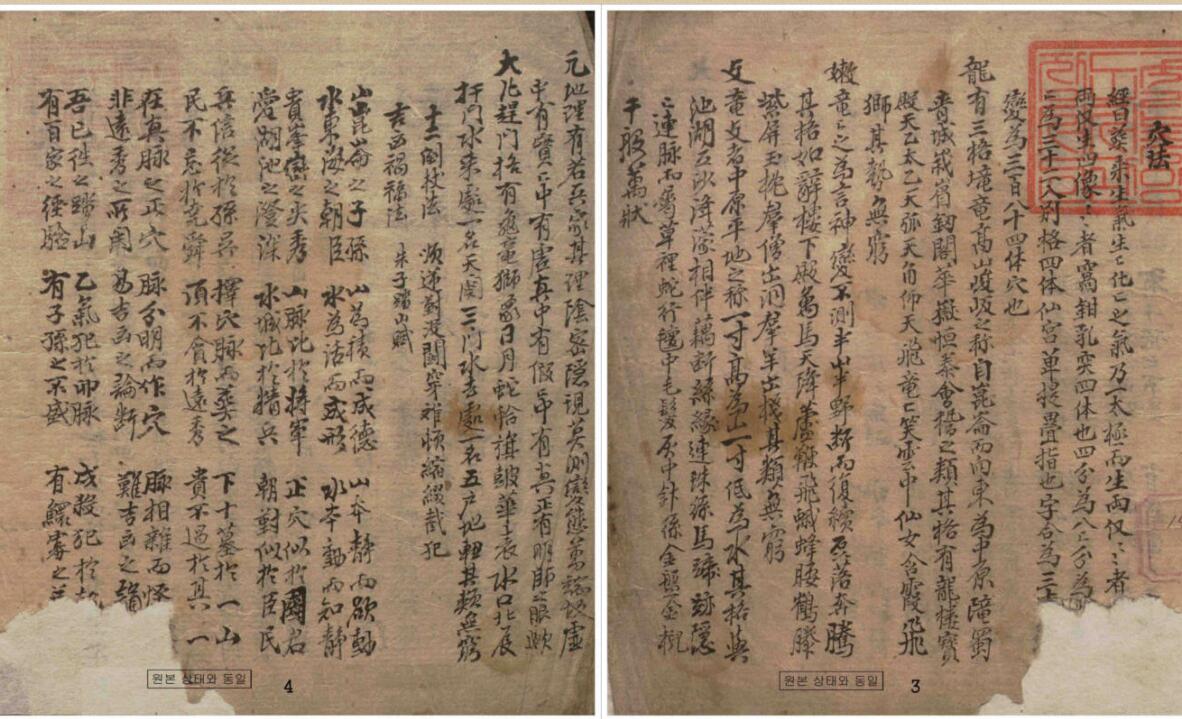 穴法
經曰葬乘生氣生〻化〻之氣乃一太極而生兩仪〻〻者
兩仪生四像〻〻者窩鉗乳突四体也四分為八〻分為
〻為三十二〻八別格四体仙宮單提疊指也字合為三十
變為三百八十四体穴也
龍有三格壠竜高山峻岐之称自崑崙而南東為中京隴蜀
晉城我眉釼閣華嶽恒泰會稽之類其格有龍樓寶
殿天乙太乙天弧天角仰天飛竜〻笑雲中仙女含霞飛
獅其勢無窮
嫩竜〻之為言神變不測半山半野断而復續磊落奔騰
其格如辭樓下殿萬馬天降蘆鞭飛蛾蜂腰鶴膝
紫屏玉桃羣僧出洞羣羊出棧其類無窮
支竜支者中原平地之称一寸高為山一寸低為水其格與
池湖五沙浮蒙相伴藕断絲緣連珠絲馬跡跡隱
〻連脉不學草裡蛇行氊中毛髮灰中針線金盤金椀
千般萬狀
3
원본 상태와 동일
元地理有若兵家其理陰密隱現莫測變態萬端故虛
中有實〻中有虛真中有假〻中有真正有明師之眼欤
大凡趕門格有龜竜獅象日月蛇恰旗皷華表水口北辰
扞門水来處一名天関三門水去處一名五户地軸其類無窮
十二倒杖法 順逆對没開穿離頓縮綴截犯
吉凶禍福法 朱子踏山賦
山崑崙之子孫 山為積而成德 山本静而欲動
水東海之朝臣 水為活而成形 水本動而知静
貴峯巒之尖秀 山脉比於将軍 正穴似於國君
愛湖池之澄深 水城比於精兵 朝對似於臣民
兵信從於孫吳 擇穴脉而葬之 下十墓於一山
民不忘於尭舜 頂不貪於遠秀 貴不過於其一
在真脉之正穴 脉分明而作穴 脉相雜而怪
非遠秀之所関 易吉凶之論断 難吉凶之
吾已徃之踏山 乙氣犯於卯脉 戌殺犯於乾
有百家之經驗 有子孫之不盛 有鰥寡之
4
원본 상태와 동일